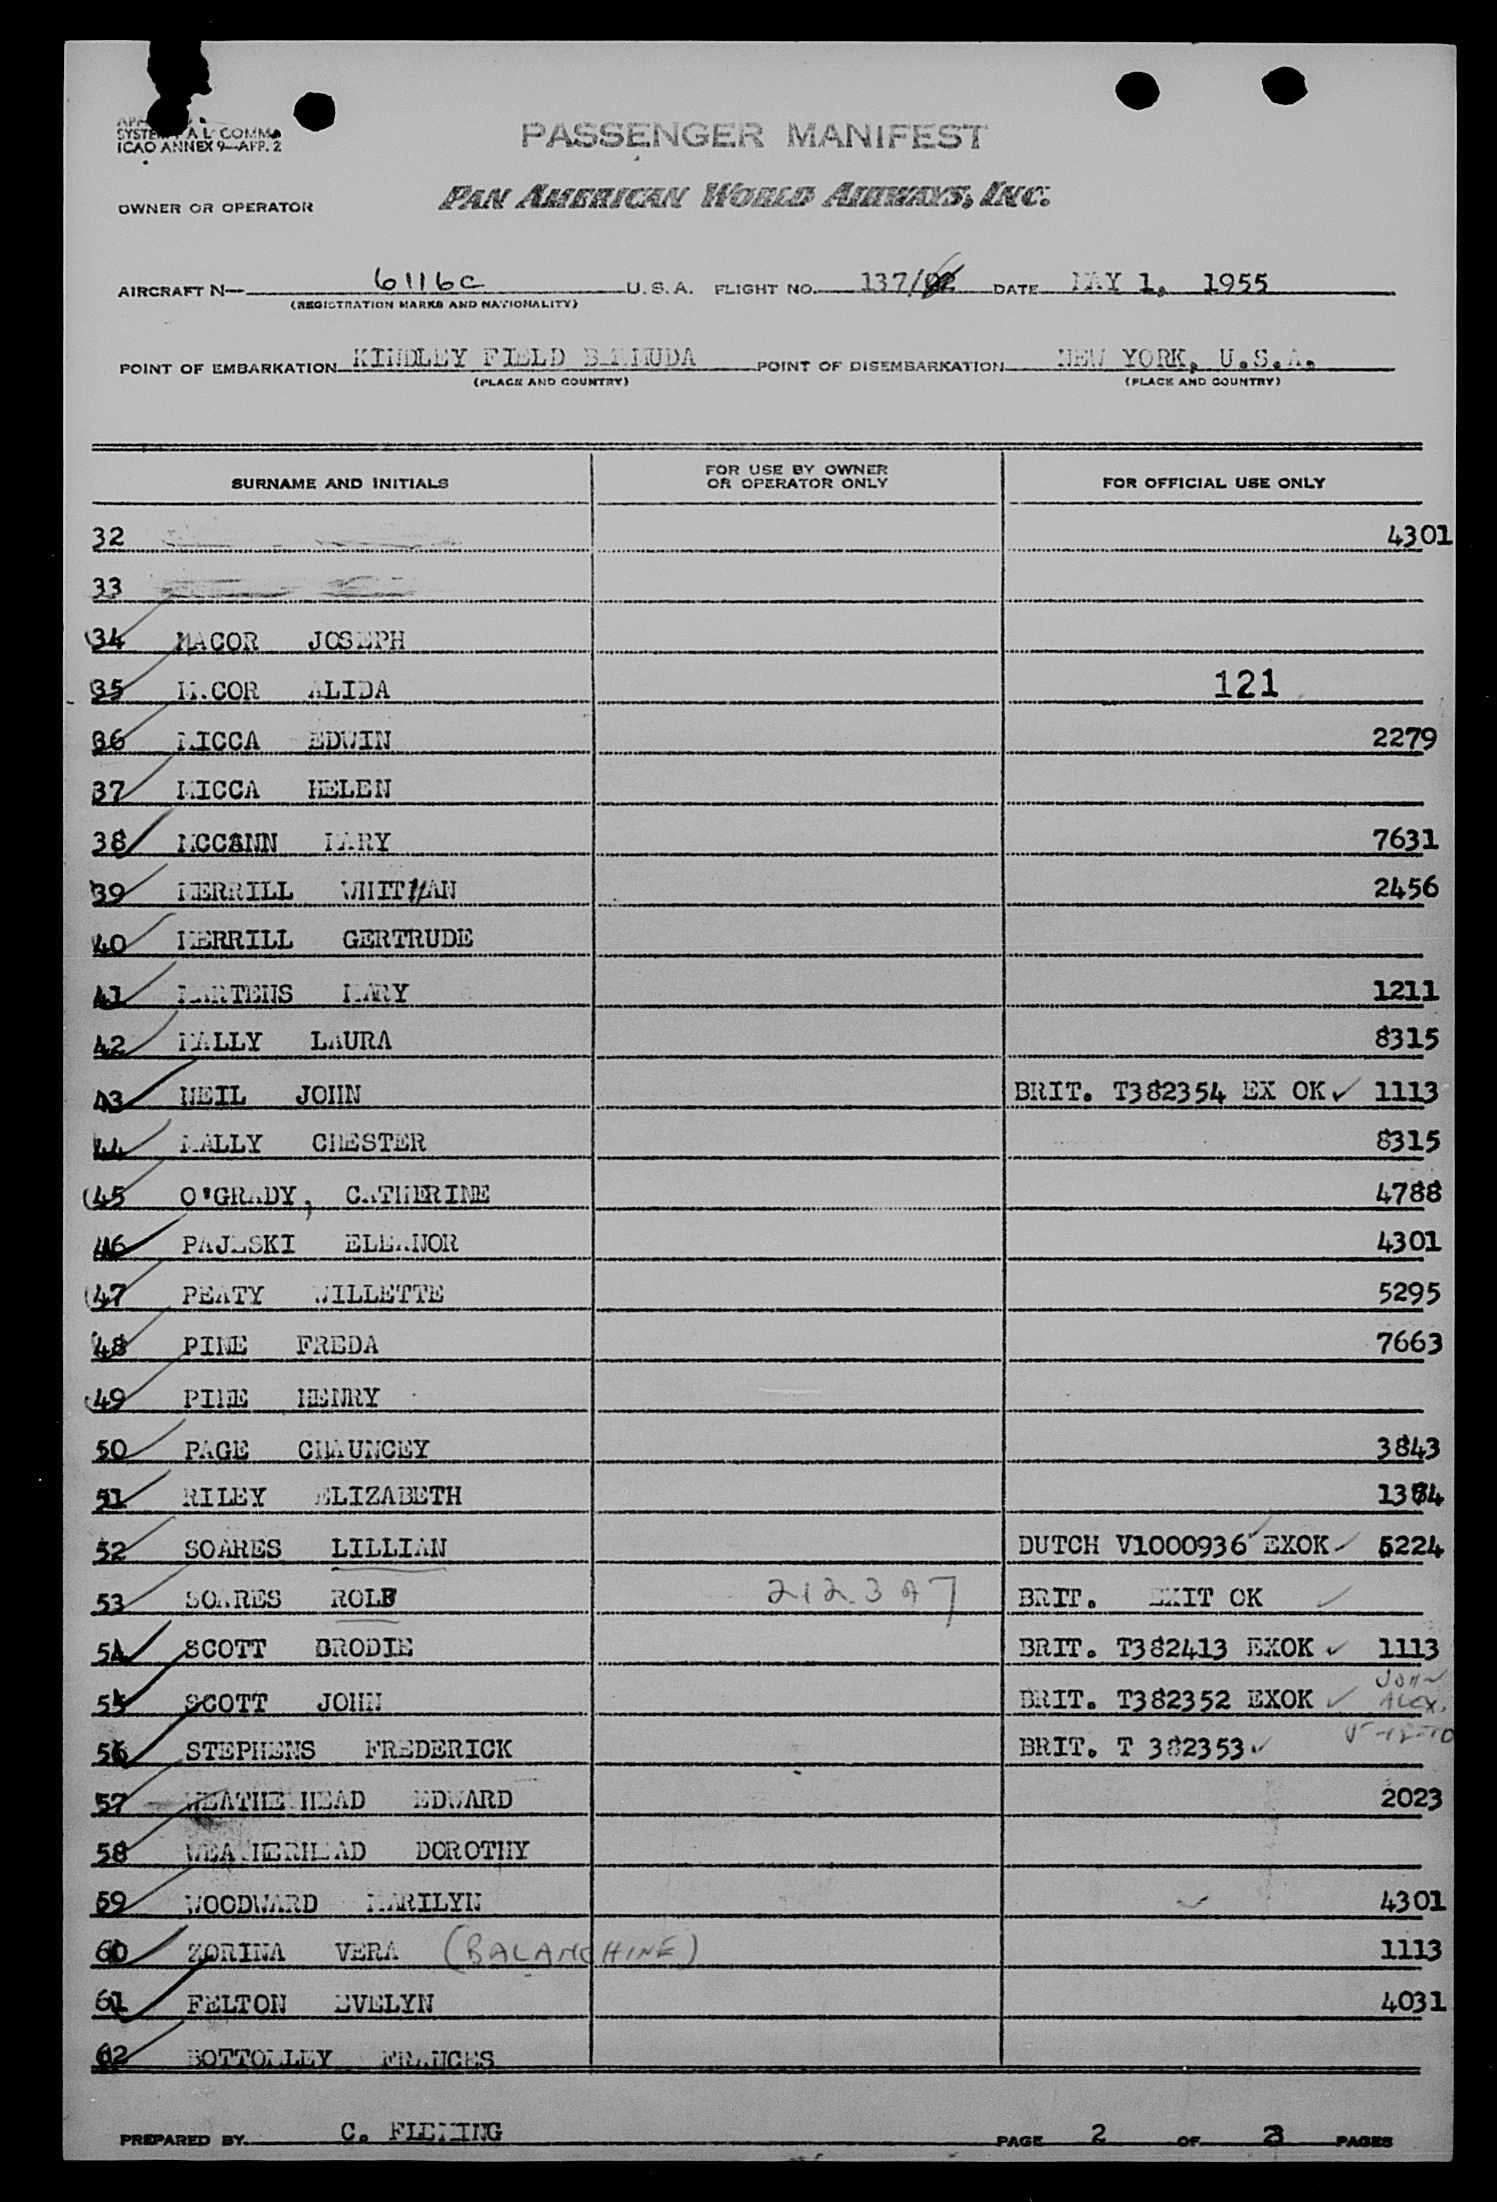 SYSTEM A L COMM.
ICAO ANNEX 9—APP. 2
PASSENGER MANIFEST
OWNER OR OPERATOR PAN AMERICAN WORLD AIRWAYS, INC.
AIRCRAFT N— 6116C U. S. A. FLIGHT NO. 137/ DATE MAY 1, 1955
(REGISTRATION MARKS AND NATIONALITY)
POINT OF EMBARKATION KINDLEY FIELD BERMUDA POINT OF DISEMBARKATION NEW YORK, U.S.A.
(PLACE AND COUNTRY) (PLACE AND COUNTRY)
SURNAME AND INITIALS FOR USE BY OWNER OR OPERATOR ONLY FOR OFFICIAL USE ONLY
32 4301
33
34 MACOR JOSEPH
35 MACOR ALIDA 121
36 MICCA EDWIN 2279
37 MICCA HELEN
38 MCCANN MARY 7631
39 MERRILL WHITMAN 2456
40 MERRILL GERTRUDE
41 MARTENS MARY 1211
42 NALLY LAURA 8315
43 NEIL JOHN BRIT. T382354 EX OK ✓ 1113
44 NALLY CHESTER 8315
45 O'GRADY, CATHERINE 4788
46 PAJESKI ELEANOR 4301
47 PEATY WILLETTE 5295
48 PINE FREDA 7663
49 PINE HENRY
50 PAGE CHAUNCEY 3843
51 RILEY ELIZABETH 1384
52 SOARES LILLIAN DUTCH V1000936 ✓ EXOK ✓ 5224
53 SOARES ROLF BRIT. EXIT OK ✓
54 SCOTT BRODIE BRIT. T382413 EXOK ✓ 1113
55 SCOTT JOHN BRIT. T382352 EXOK ✓ JOHN ALEX.
56 STEPHENS FREDERICK BRIT. T 382353 ✓
57 WEATHERHEAD EDWARD 2023
58 WEATHERHEAD DOROTHY
59 WOODWARD MARILYN ✓ 4301
60 ZORINA VERA (BALANCHINE) 1113
61 FELTON EVELYN 4031
62 BOTTOMLEY FRANCES
PREPARED BY C. FLEMING PAGE 2 OF 3 PAGES